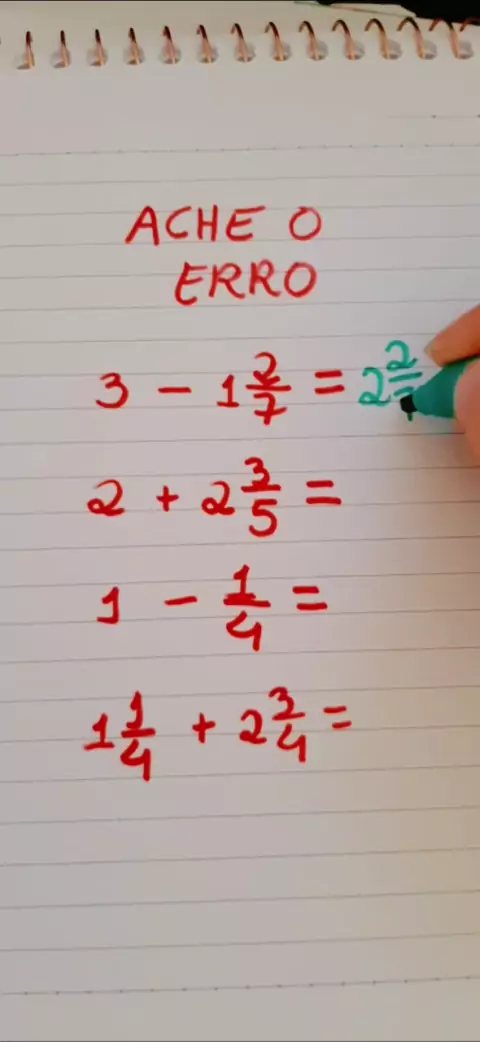 ACHE O
ERRO
3 - 1 2/7 = 2 2/7
2 + 2 3/5 =
1 - 1/4 =
1 1/4 + 2 3/4 =